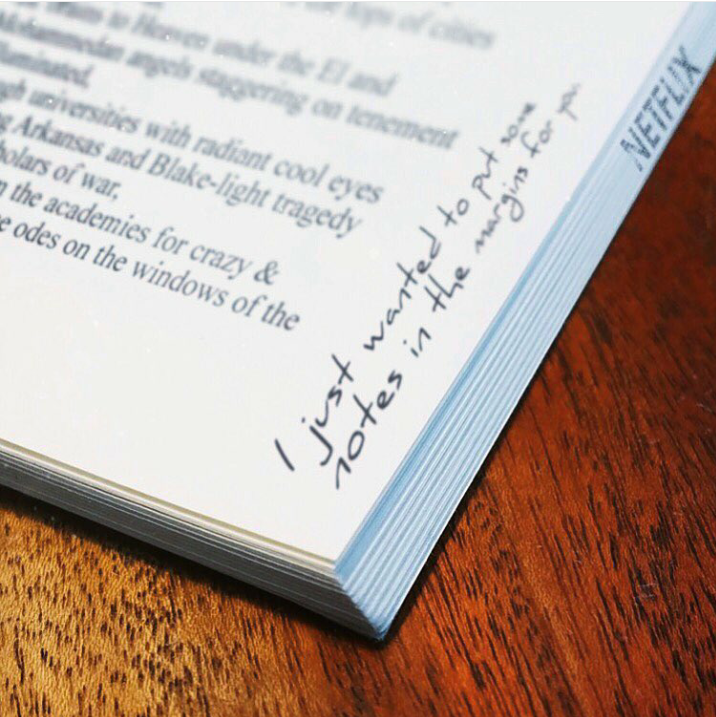 tops of cities
to Heaven under the El and
Mohammedan angels staggering on tenement
lluminated,
gh universities with radiant cool eyes
g Arkansas and Blake-light tragedy
holars of war,
the academies for crazy &
e odes on the windows of the
I just wanted to put some
notes in the margins for you
NETFLIX